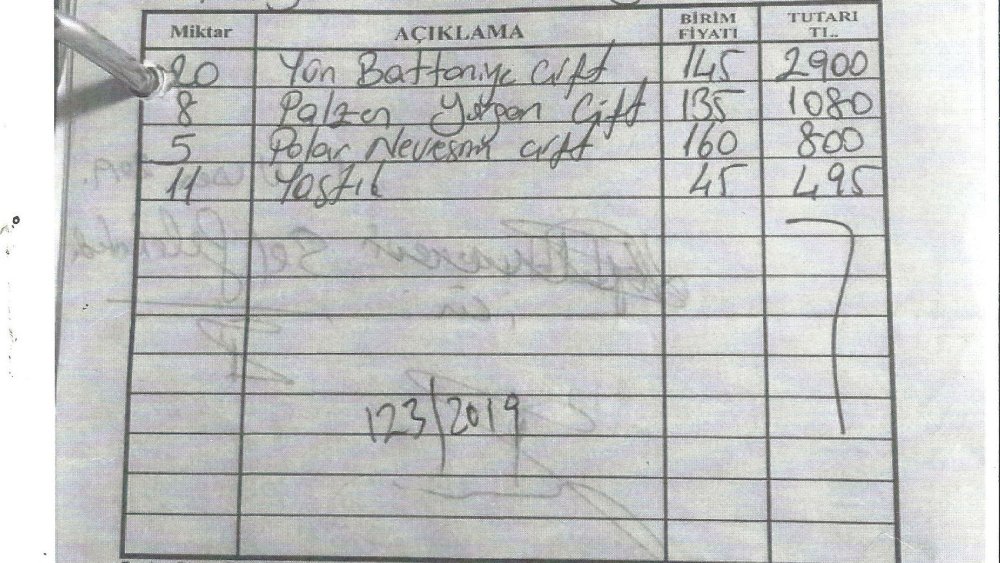 Miktar AÇIKLAMA BİRİM FİYATI TUTARI TL.
20 Yün Battaniye Çift 145 2900
8 Palzen Yorgan Çift 135 1080
5 Polar Nevresim Çift 160 800
11 Yastık 45 495
123/2019